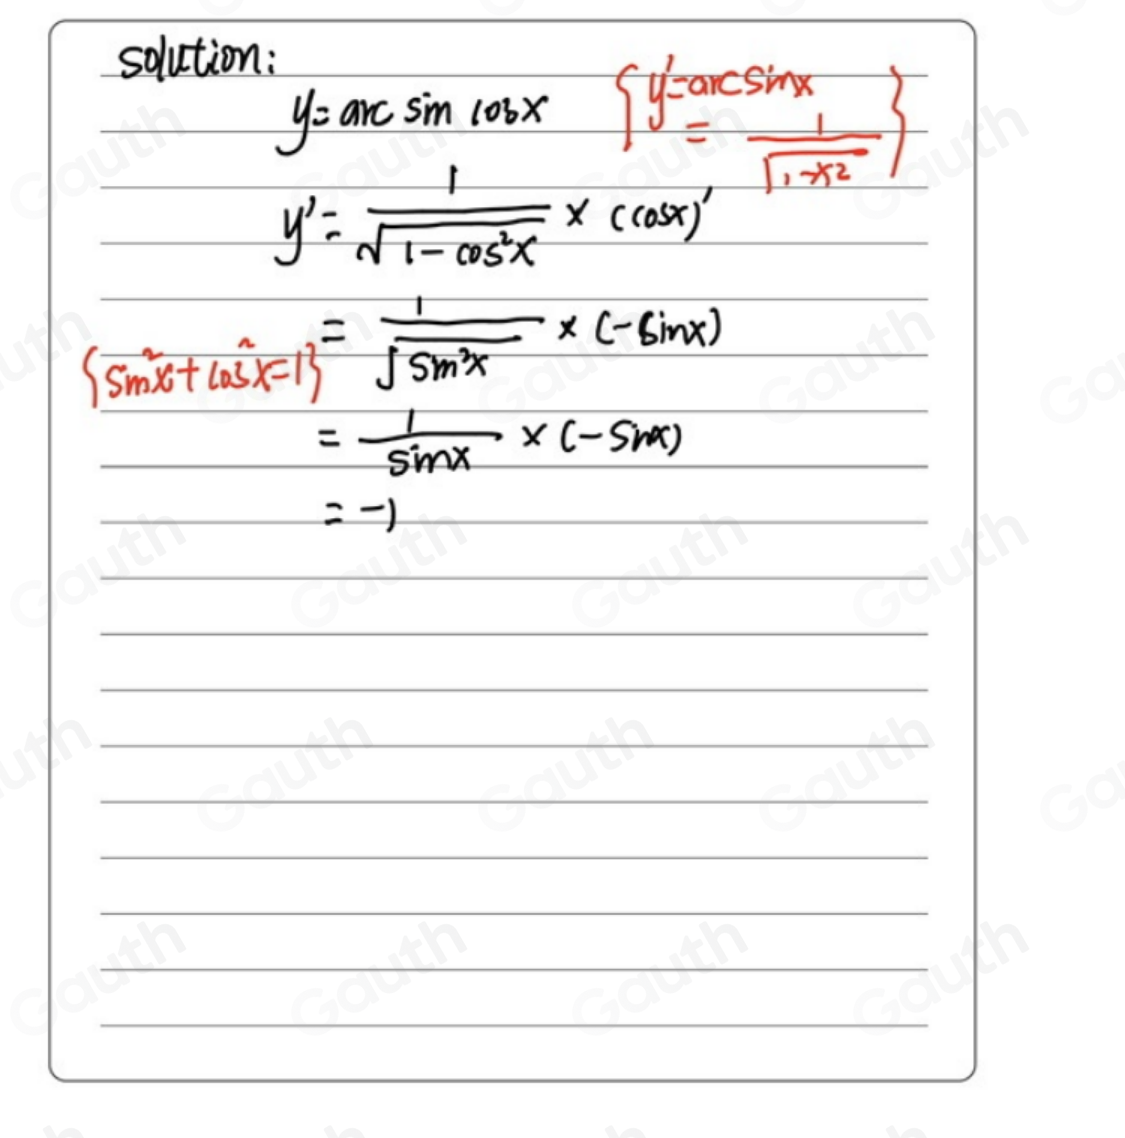 solution:
y = arc sin cosx
{y'=arcsinx
= 1/√1-x2}
y' = 1/√1-cos²x × (cosx)'
= 1/√sin²x × (-sinx)
{sin²x + cos²x=1}
= 1/sinx × (-sinx)
= -1
Gauth